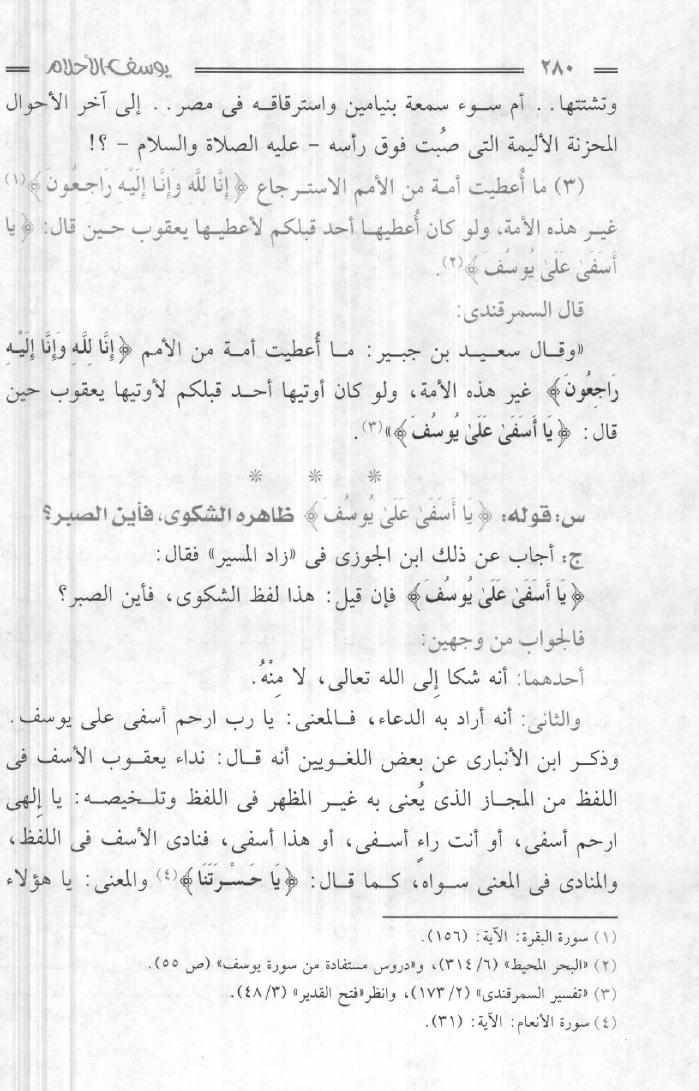 ٢٨٠ يوسف الأحلام
وتشتتها.. أم سوء سمعة بنيامين واسترقاقه فى مصر.. إلى آخر الأحوال
المحزنة الأليمة التى صُبت فوق رأسه - عليه الصلاة والسلام - ؟!
(٣) ما أُعطيت أمة من الأمم الاسترجاع ﴿إِنَّا لِلَّهِ وَإِنَّا إِلَيْهِ رَاجِعُونَ﴾(١)
غير هذه الأمة، ولو كان أُعطيها أحد قبلكم لأعطيها يعقوب حين قال: ﴿يا
أَسَفَىٰ عَلَىٰ يُوسُفَ﴾(٢).
قال السمرقندى:
«وقال سعيد بن جبير: ما أُعطيت أمة من الأمم ﴿إِنَّا لِلَّهِ وَإِنَّا إِلَيْهِ
رَاجِعُونَ﴾ غير هذه الأمة، ولو كان أوتيها أحد قبلكم لأوتيها يعقوب حين
قال: ﴿يَا أَسَفَىٰ عَلَىٰ يُوسُفَ﴾»(٣).
* * *
س: قوله: ﴿يَا أَسَفَىٰ عَلَىٰ يُوسُفَ﴾ ظاهره الشكوى، فأين الصبر؟
ج: أجاب عن ذلك ابن الجوزى فى «زاد المسير» فقال:
﴿يَا أَسَفَىٰ عَلَىٰ يُوسُفَ﴾ فإن قيل: هذا لفظ الشكوى، فأين الصبر؟
فالجواب من وجهين:
أحدهما: أنه شكا إِلى الله تعالى، لا مِنْهُ.
والثانى: أنه أراد به الدعاء، فالمعنى: يا رب ارحم أسفى على يوسف.
وذكر ابن الأنبارى عن بعض اللغويين أنه قال: نداء يعقوب الأسف فى
اللفظ من المجاز الذى يُعنى به غير المظهر فى اللفظ وتلخيصه: يا إِلهى
ارحم أسفى، أو أنت راءٍ أسفى، أو هذا أسفى، فنادى الأسف فى اللفظ،
والمنادى فى المعنى سواه، كما قال: ﴿يَا حَسْرَتَنَا﴾(٤) والمعنى: يا هؤلاء
(١) سورة البقرة: الآية: (١٥٦).
(٢) «البحر المحيط» (٣١٤/٦)، و«دروس مستفادة من سورة يوسف» (ص ٥٥).
(٣) «تفسير السمرقندى» (١٧٣/٢)، وانظر «فتح القدير» (٤٨/٣).
(٤) سورة الأنعام: الآية: (٣١).